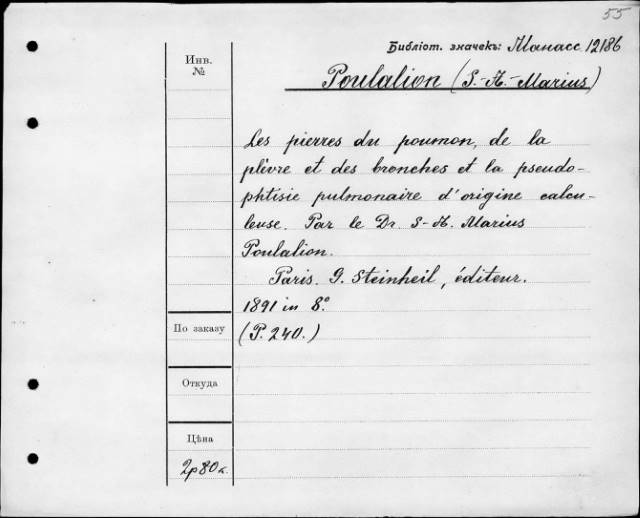 55
Библіот. значекъ: Манасс. 12186
Инв.
№
Poulalion (S.-A.-Marius)
Les pierres du poumon, de la
plèvre et des bronches et la pseudo-
phtisie pulmonaire d'origine calcu-
leuse. Par le Dr. S-A. Marius
Poulalion.
Paris. G. Steinheil, éditeur.
1891 in 8°.
По заказу
(P. 240.)
Откуда
Цѣна
2р80к.